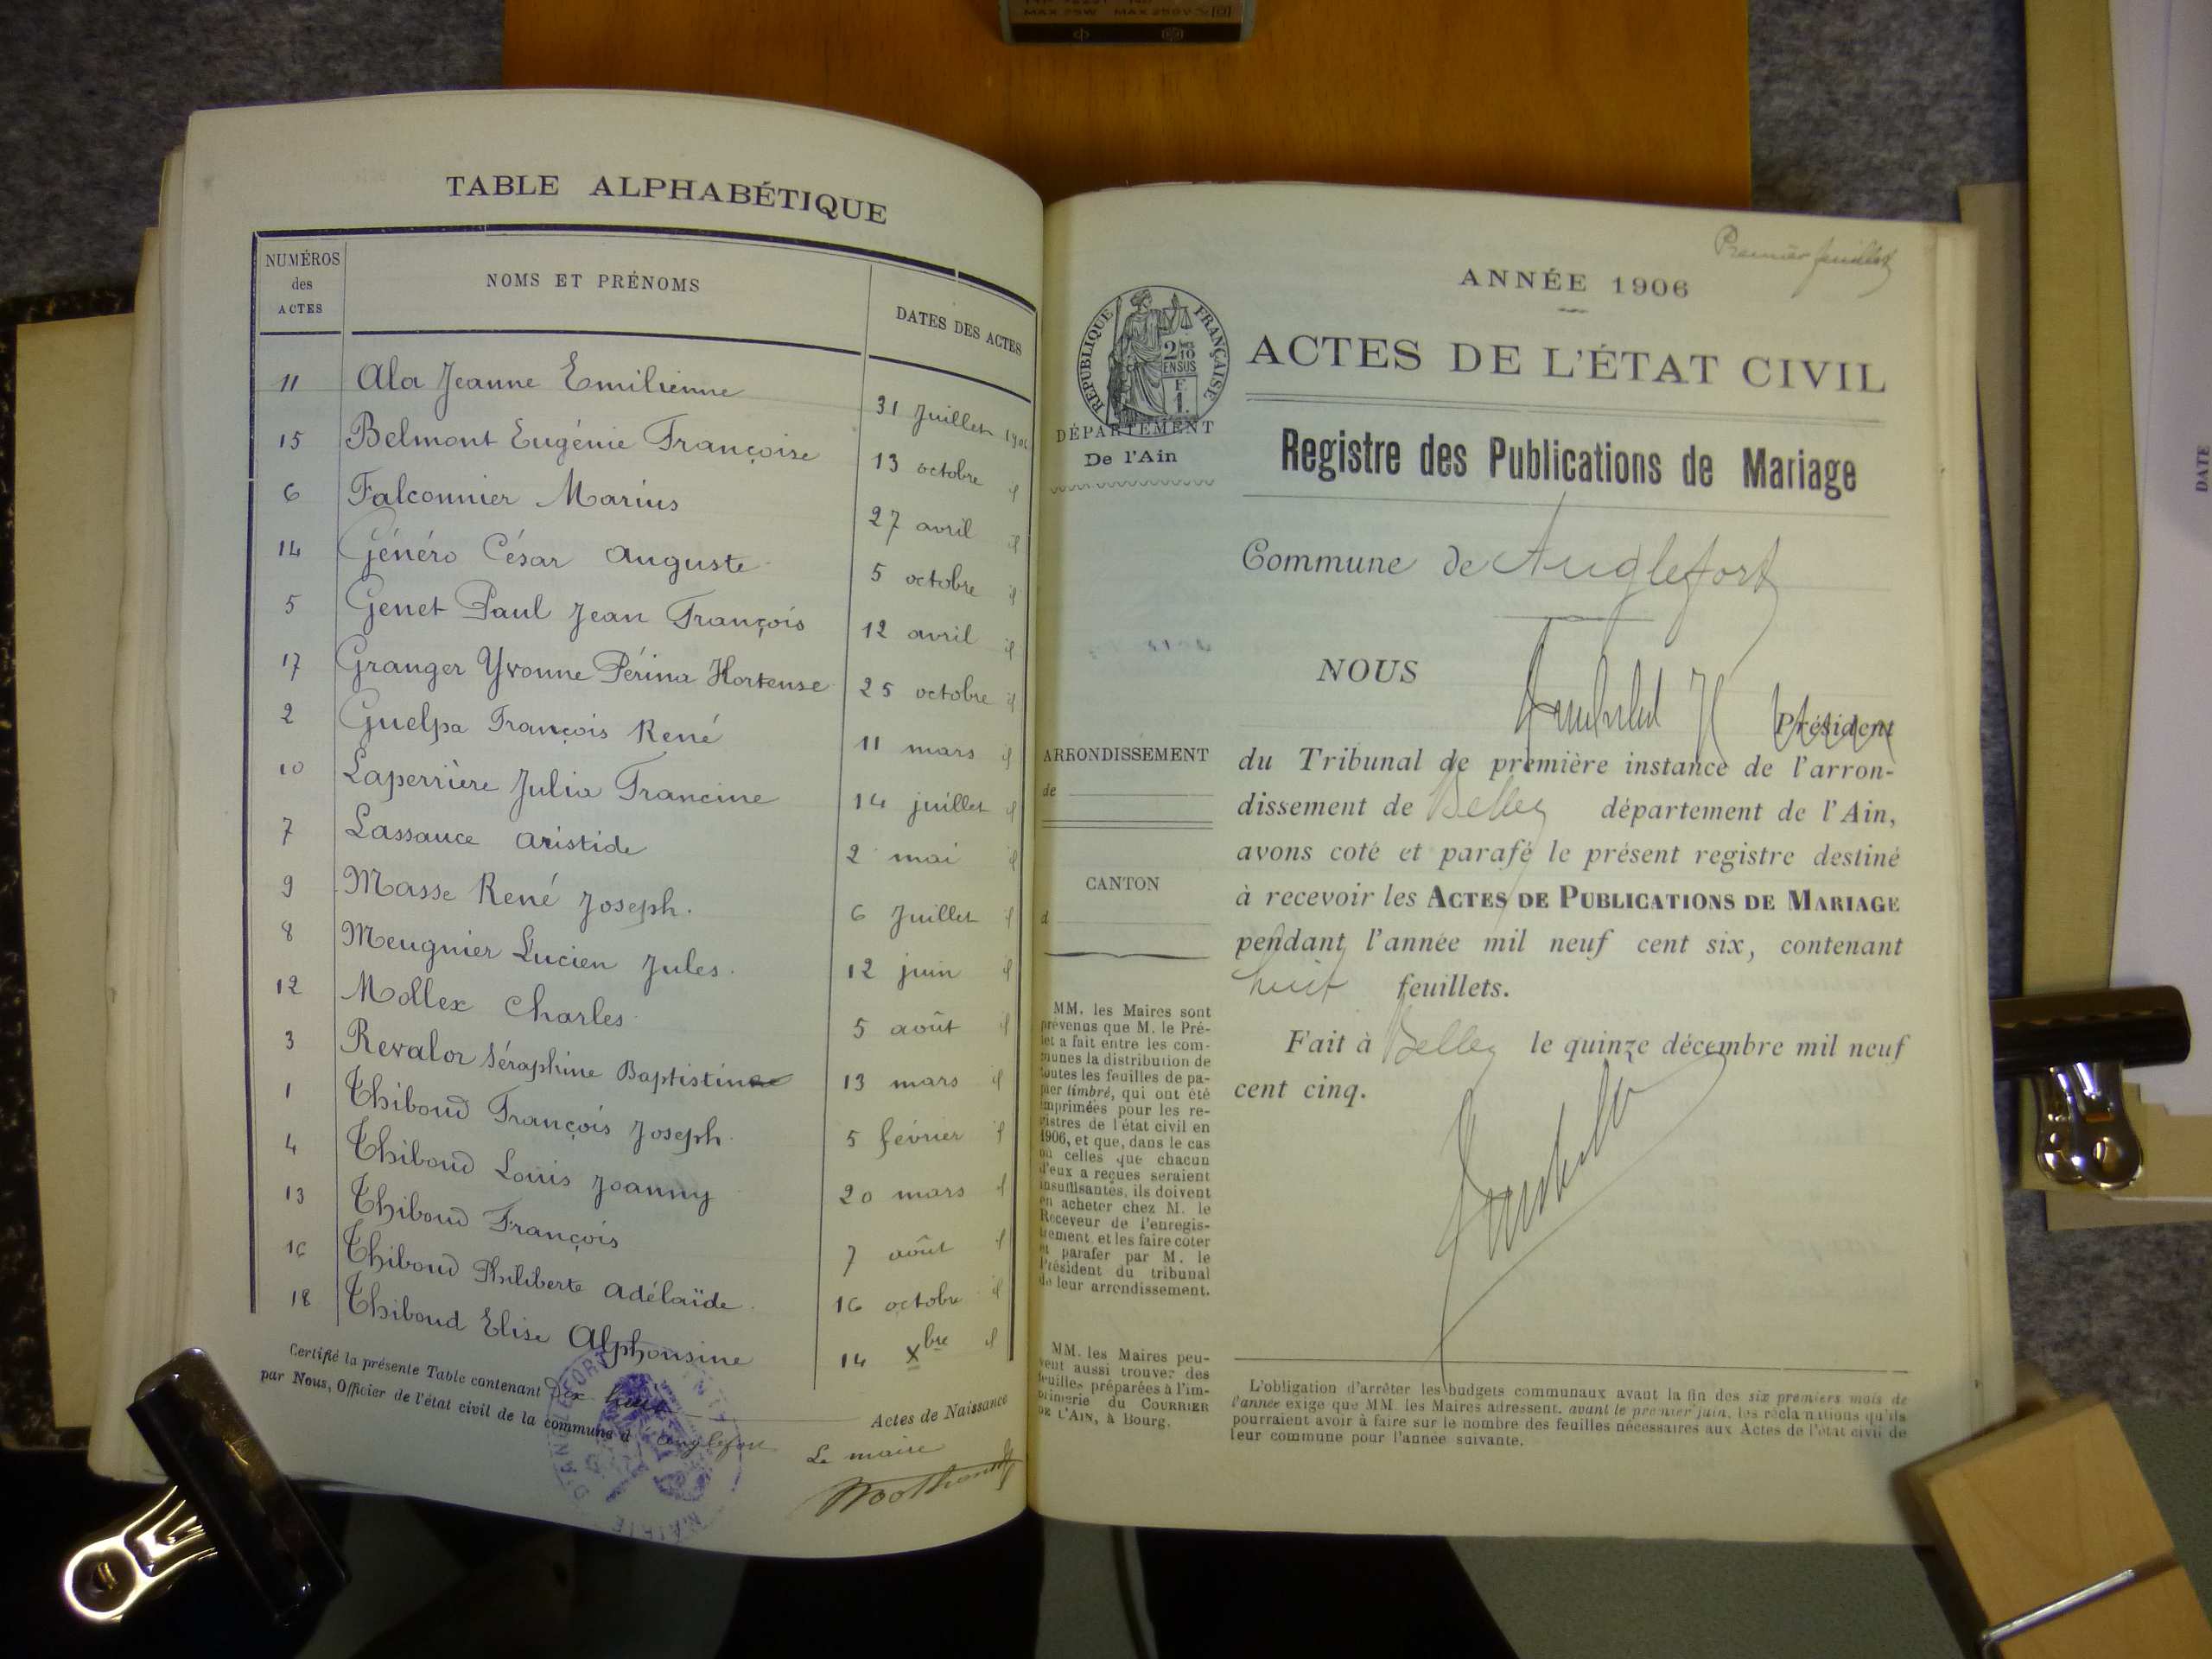 MAX 25W MAX 250V
TABLE ALPHABÉTIQUE
NUMÉROS
des
ACTES
NOMS ET PRÉNOMS
DATES DES ACTES
11 Ala Jeanne Emilienne 31 Juillet 1906
15 Belmont Eugénie Françoise 13 octobre id
6 Falconnier Marius 27 avril id
14 Généro César Auguste 5 octobre id
5 Genet Paul Jean François 12 avril id
17 Granger Yvonne Périna Hortense 25 octobre id
2 Guelpa François René 11 mars id
10 Laperrière Julia Francine 14 juillet id
7 Lassauce Aristide 2 mai id
9 Masse René Joseph. 6 Juillet id
8 Meugnier Lucien Jules. 12 juin id
12 Mollex Charles 5 août id
3 Revalor Séraphine Baptistine 13 mars id
1 Thiboud François Joseph 5 février id
4 Thiboud Louis Joanny 20 mars id
13 Thiboud François 7 août id
16 Thiboud Philiberte Adélaïde. 16 octobre id
18 Thiboud Elise Alphonsine 14 Xbre id
Certifié la présente Table contenant Dix huit Actes de Naissance
par Nous, Officier de l'état civil de la commune d'Anglefort
Le maire
MAIRIE D'ANGLEFORT
Premier feuillet
ANNÉE 1906
RÉPUBLIQUE FRANÇAISE
2/10
EN SUS
F.
1.
DÉPARTEMENT
De l'Ain
ACTES DE L'ÉTAT CIVIL
Registre des Publications de Mariage
Commune de Anglefort
NOUS
Président
du Tribunal de première instance de l'arron-
dissement de Belley département de l'Ain,
avons coté et parafé le présent registre destiné
à recevoir les ACTES DE PUBLICATIONS DE MARIAGE
pendant l'année mil neuf cent six, contenant
huit feuillets.
Fait à Belley le quinze décembre mil neuf
cent cinq.
ARRONDISSEMENT
de
CANTON
d
MM. les Maires sont
prévenus que M. le Pré-
fet a fait entre les com-
munes la distribution de
toutes les feuilles de pa-
pier timbré, qui ont été
imprimées pour les re-
gistres de l'état civil en
1906, et que, dans le cas
où celles que chacun
d'eux a reçues seraient
insuffisantes, ils doivent
en acheter chez M. le
Receveur de l'enregis-
trement, et les faire coter
et parafer par M. le
Président du tribunal
de leur arrondissement.
MM. les Maires peu-
vent aussi trouver des
feuilles préparées à l'im-
primerie du COURRIER
DE L'AIN, à Bourg.
L'obligation d'arrêter les budgets communaux avant la fin des six premiers mois de
l'année exige que MM. les Maires adressent, avant le premier juin, les réclamations qu'ils
pourraient avoir à faire sur le nombre des feuilles nécessaires aux Actes de l'état civil de
leur commune pour l'année suivante.
DATE